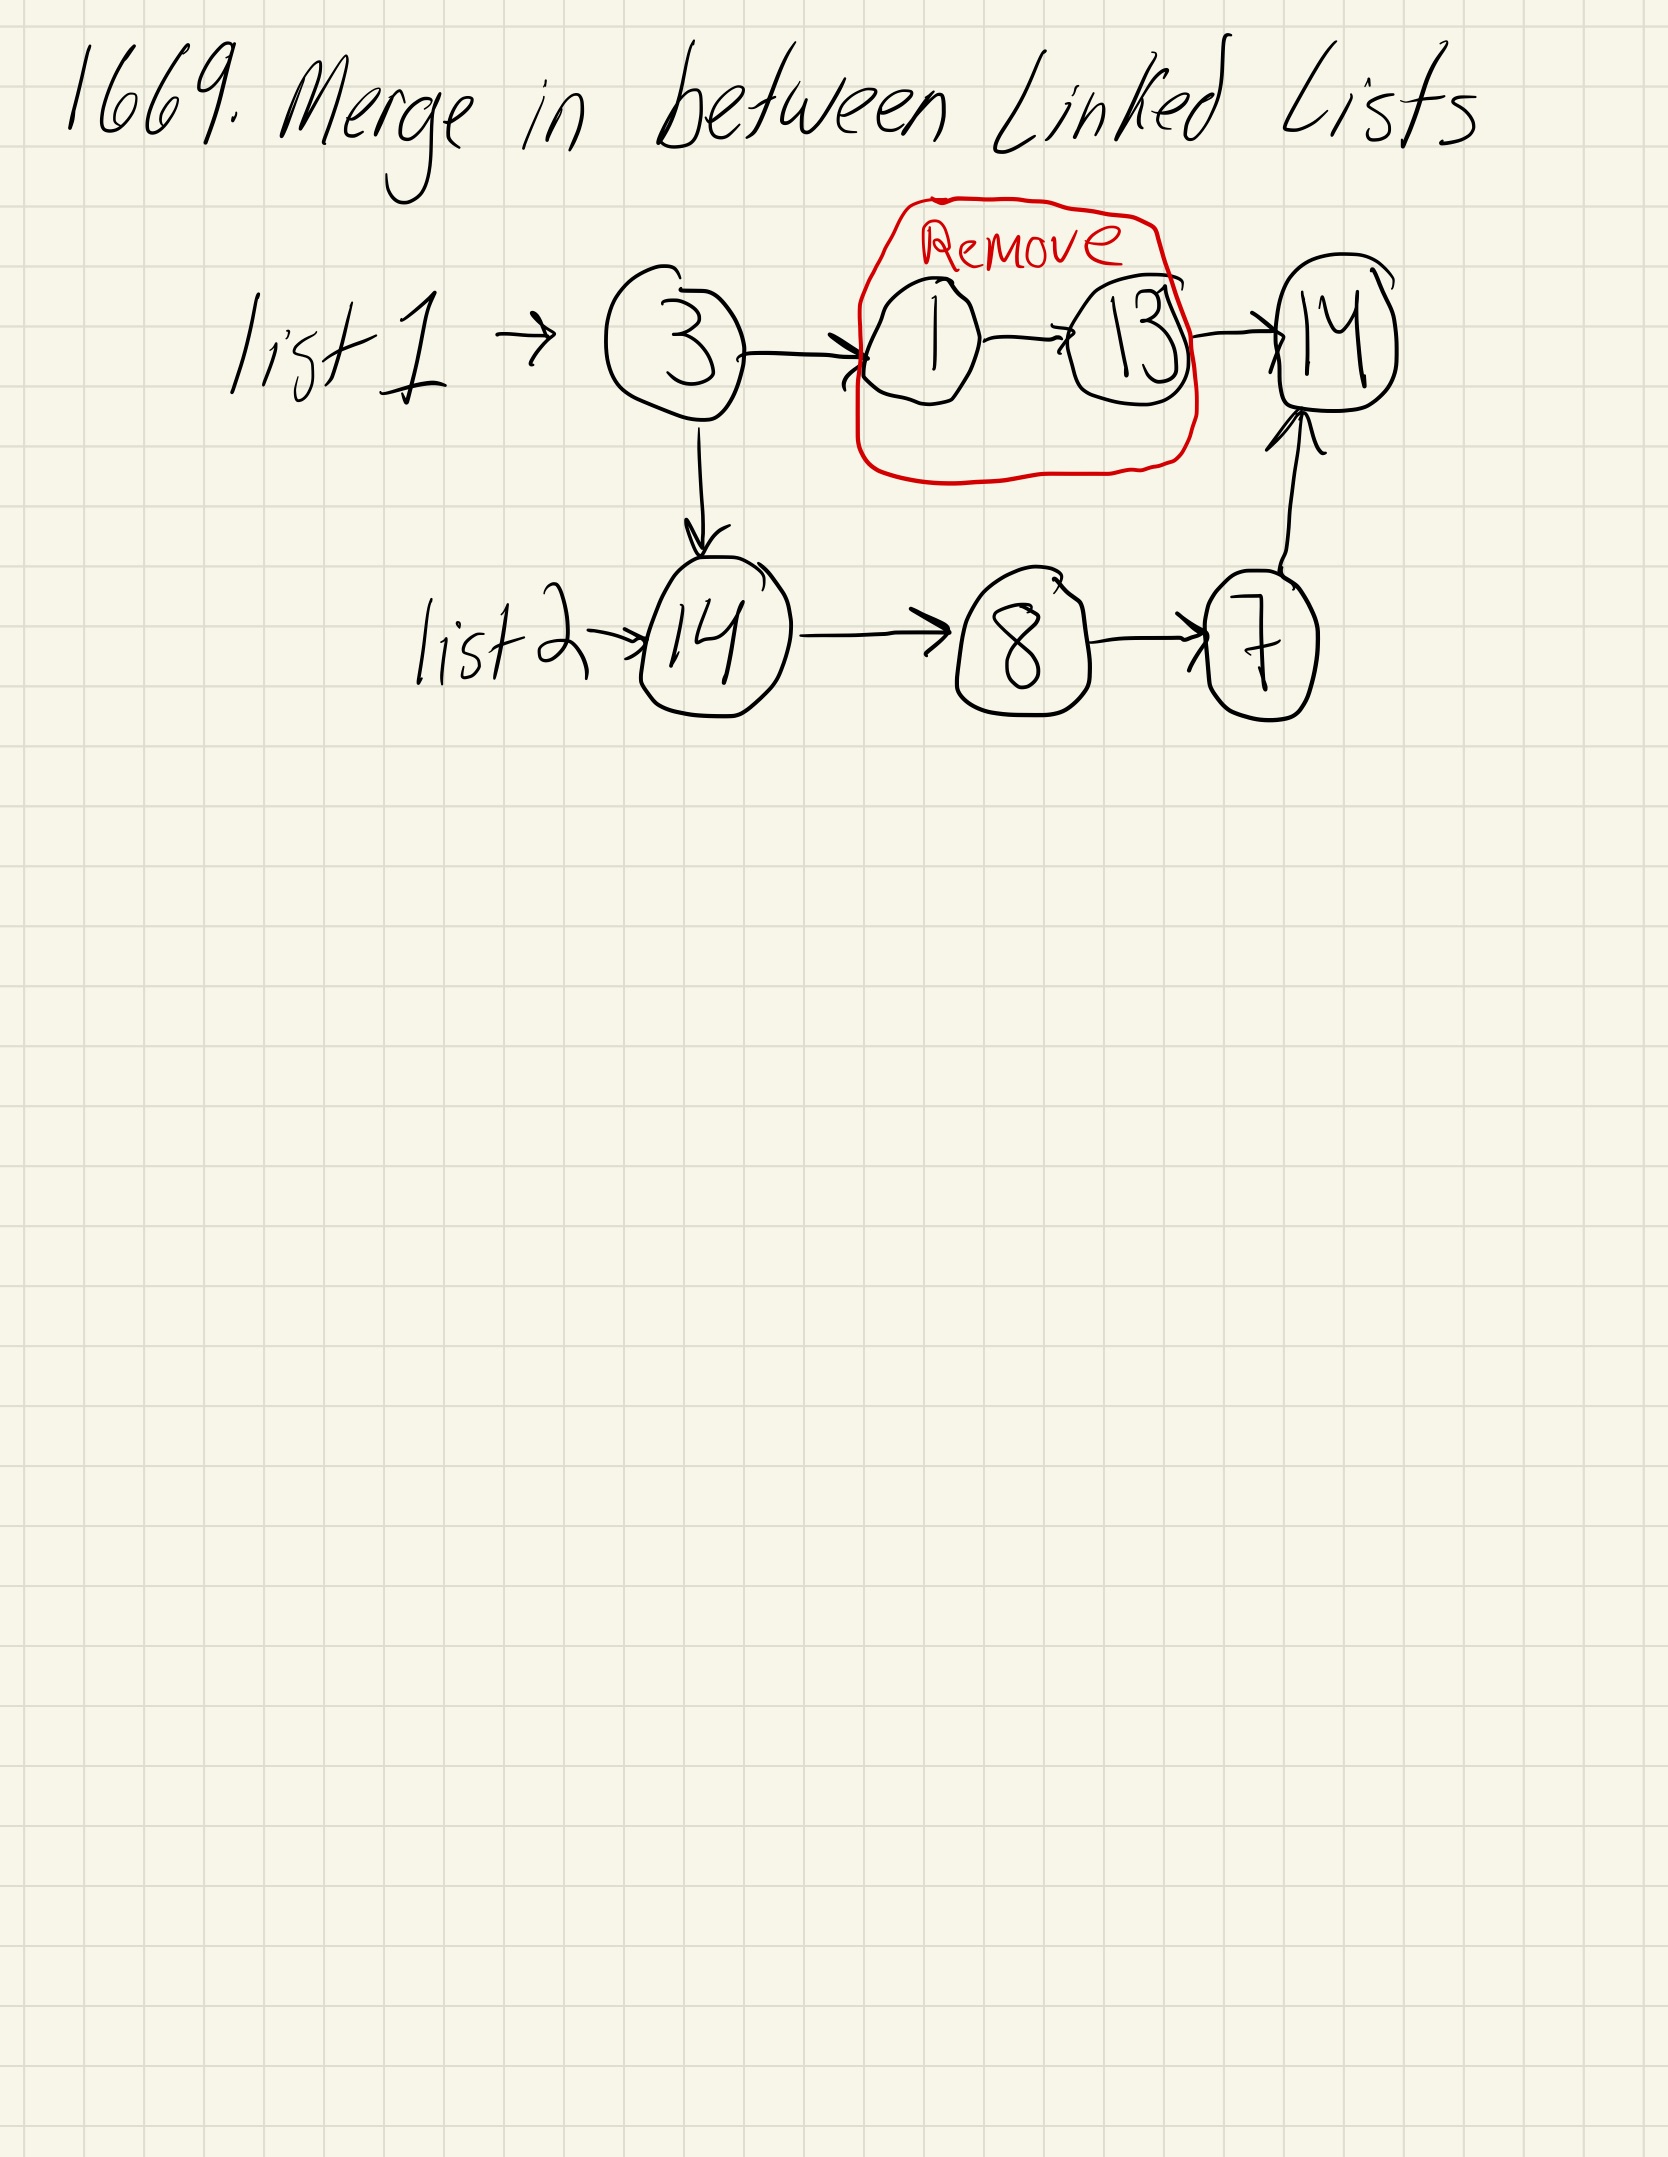 1669. Merge in between Linked Lists
Remove
list1 → 3 → 1 → 13 → 14
list2 → 14 → 8 → 7